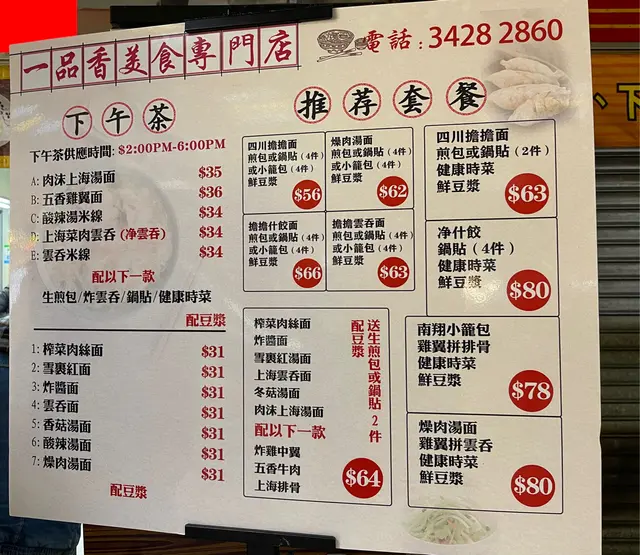 一品香美食專門店
電話：3428 2860
下午茶
下午茶供應時間: $2:00PM-6:00PM
A: 肉沫上海湯面 $35
B: 五香雞翼面 $36
C: 酸辣湯米線 $34
D: 上海菜肉雲吞 (净雲吞) $34
E: 雲吞米線 $34
配以下一款
生煎包/炸雲吞/鍋貼/健康時菜
配豆漿
1: 榨菜肉絲面 $31
2: 雪裹紅面 $31
3: 炸醬面 $31
4: 雲吞面 $31
5: 香菇湯面 $31
6: 酸辣湯面 $31
7: 燥肉湯面 $31
配豆漿
推荐套餐
四川擔擔面
煎包或鍋貼（4件）
或小籠包（4件）
鮮豆漿
$56
燥肉湯面
煎包或鍋貼（4件）
或小籠包（4件）
鮮豆漿
$62
四川擔擔面
煎包或鍋貼（2件）
健康時菜
鮮豆漿
$63
擔擔什餃面
煎包或鍋貼（4件）
或小籠包（4件）
鮮豆漿
$66
擔擔雲吞面
煎包或鍋貼（4件）
或小籠包（4件）
鮮豆漿
$63
净什餃
鍋貼（4件）
健康時菜
鮮豆漿
$80
榨菜肉絲面
炸醬面
雪裹紅湯面
上海雲吞面
冬菇湯面
肉沫上海湯面
配以下一款
炸雞中翼
五香牛肉
上海排骨
送生煎包或鍋貼2件
配豆漿
$64
南翔小籠包
雞翼拼排骨
健康時菜
鮮豆漿
$78
燥肉湯面
雞翼拼雲吞
健康時菜
鮮豆漿
$80
、下